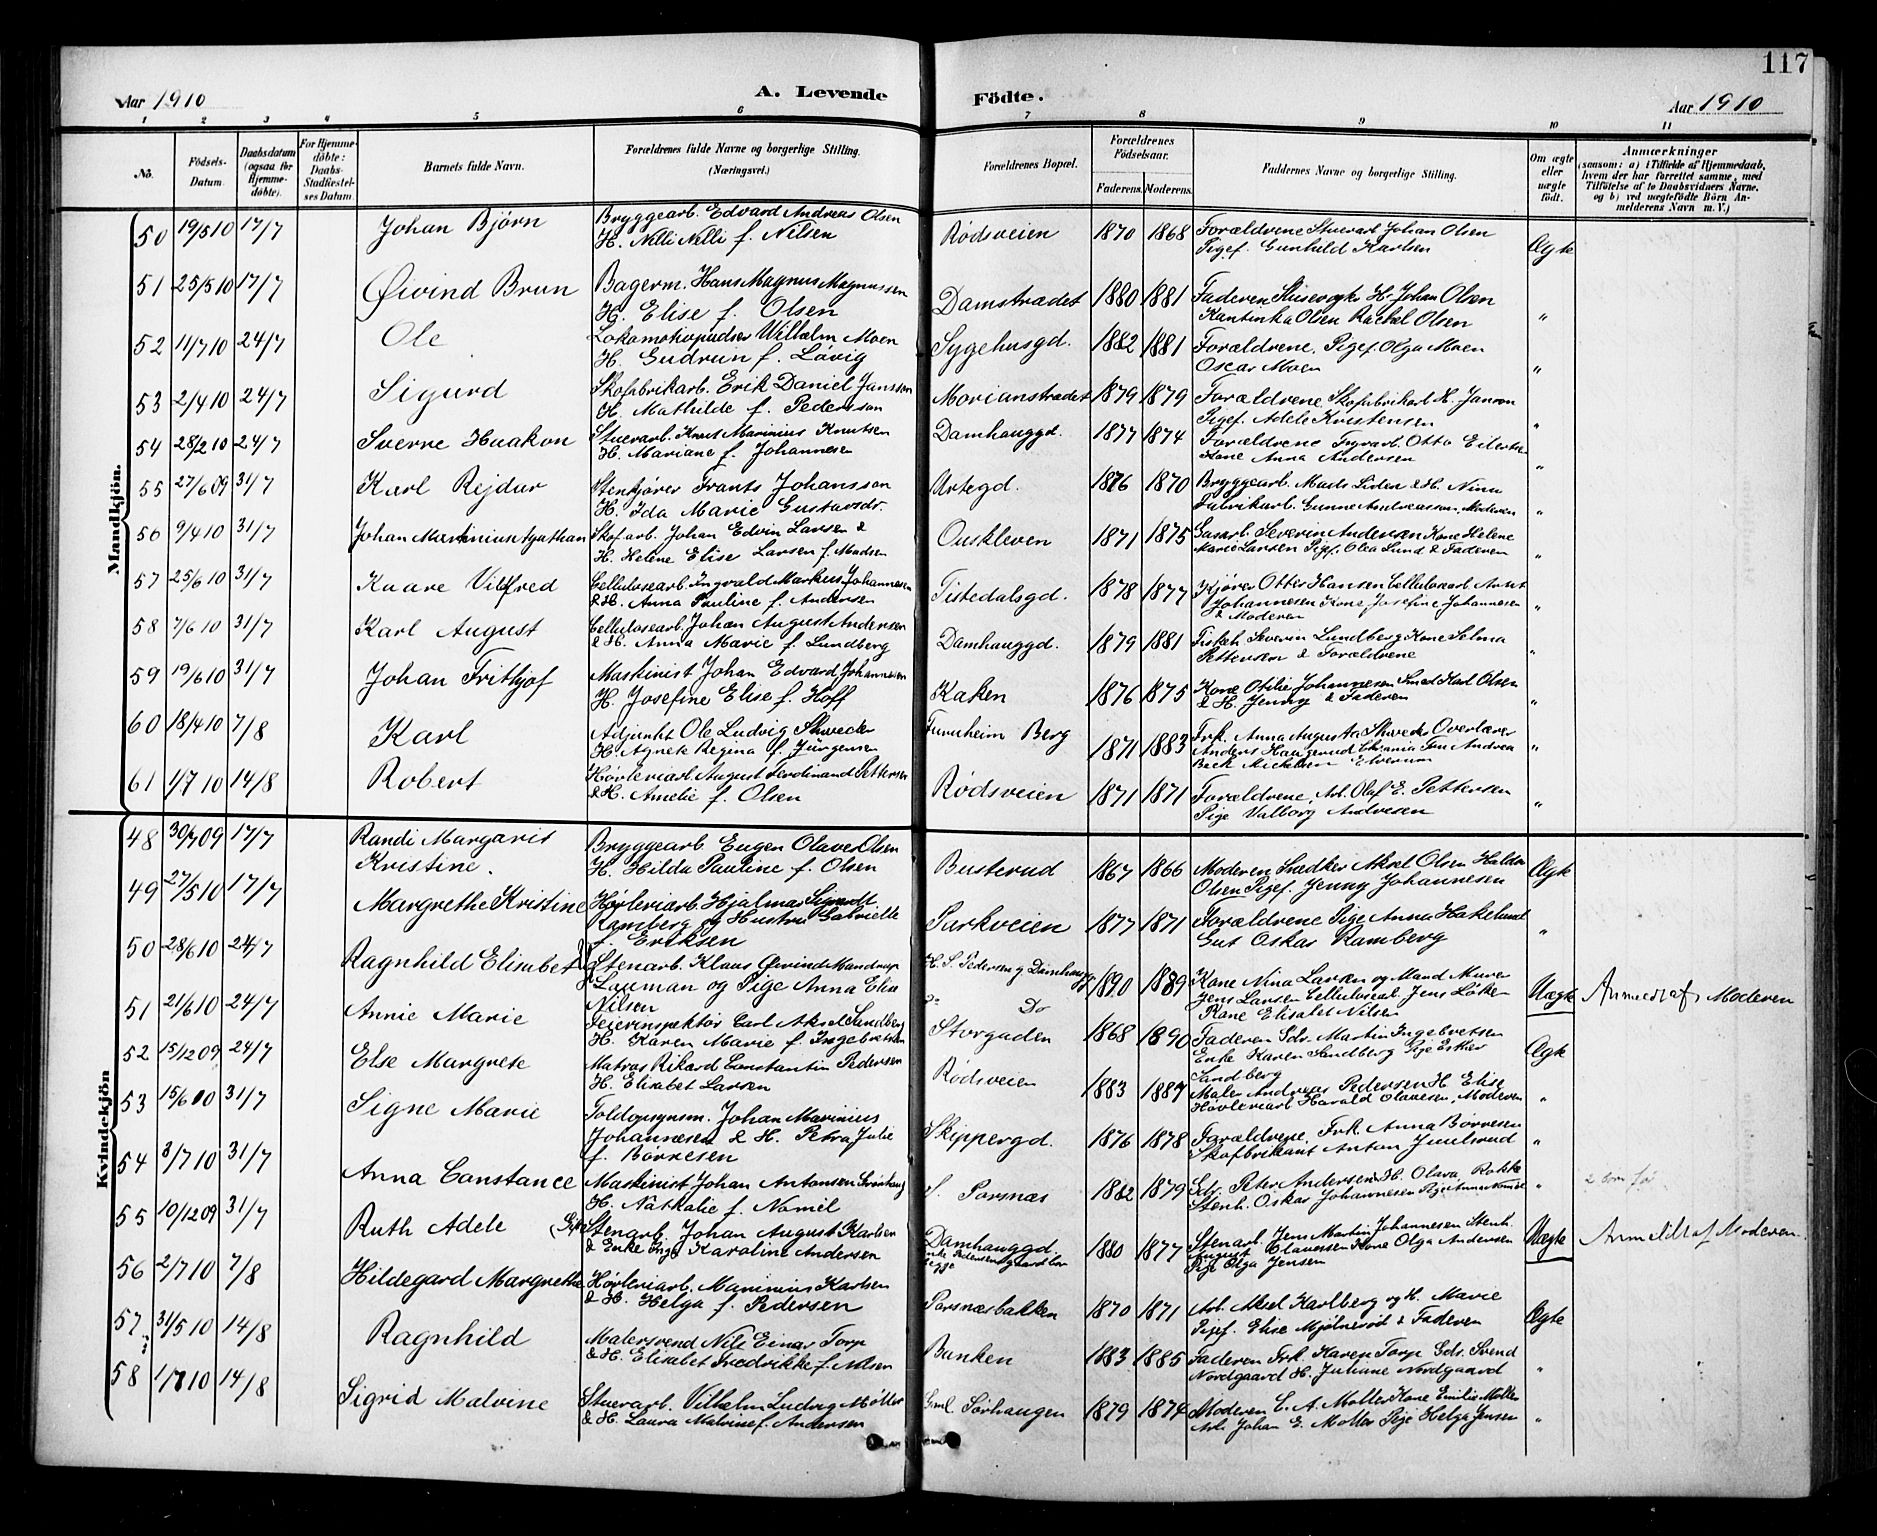 117
Aar 1910
A. Levende
Födte.
Aar 1910
1 2 3 4 5 6 7 8 9 10 11
No.
Födsels-Datum.
Daabsdatum (ogsaa för Hjemmedöbte).
For Hjemmedöbte: Daabs-Stadfæstelses Datum
Barnets fulde Navn.
Forældrenes fulde Navne og borgerlige Stilling. (Næringsvei.)
Forældrenes Bopæl.
Forældrenes Födselsaar.
Faderens. Moderens.
Faddernes Navne og borgerlige Stilling.
Om ægte eller uægte födt.
Anmærkninger
(saasom: a) i Tilfælde af Hjemmedaab, hvem der har forrettet samme, med Tilföielse af to Daabsvidners Navne, og b) ved uægtefödte Börn Anmelderens Navn m. V.)
Mandkjön.
50 19/5 10 17/7 Johan Bjørn Bryggearb. Edvard Andreas Olsen
H. Nelli Nelli f. Nilsen Rødsveien 1870 1868 Forældrene Stuerarb Johan Olsen
Pigef. Gunhild Karlsen Ægte
51 25/5 10 17/7 Øivind Brun Bagerm. Hans Magnus Magnussen
H. Elise f. Olsen Damstrædet 1880 1881 Faderen Slusevogter H. Johan Olsen
Kantinka Olsen Rachel Olsen "
52 11/7 10 24/7 Ole Lokomotivpudser Wilhelm Moen
H. Gudrun f. Løvig Sygehusgd. 1882 1881 Forældrene, Pigef. Olga Moen
Oscar Moen "
53 2/4 10 24/7 Sigurd Skofabrikarb. Erik Daniel Janssen
H. Mathilde f. Pederssen Morianstrædet 1879 1879 Forældrene Skofabrikarb H. Janson
Pigef. Adele Kristensen "
54 28/2 10 24/7 Sverre Haakon Stuerarb. Knut Marinius Knutsen
H. Mariane f. Johannesen Damhauggd. 1877 1874 Forældrene Otto Eilertsen
Kone Anna Andersen "
55 27/6 09 31/7 Karl Rejdar Stenkjører Frants Johansson
H. Ida Marie Gustavsdr. Urtegd. 1876 1870 Bryggearb. Mads Liden & H. Nina
Fabrikarb. Gunne Andreasson, Moderen "
56 9/4 10 31/7 Johan Martinius Agathan Skofarb. Johan Edvin Larsen &
H. Helene Elise Larsen f. Madsen Ouskleven 1871 1875 Gasarb. Severin Andersen Kone Helene
Marie Larsen Pigef. Olea Lund & Faderen "
57 25/6 10 31/7 Kaare Vilfred Cellulosearb. Ingvald Markus Johannesen
& H. Anna Pauline f. Andersen Tistedalsgd. 1878 1877 Kjører Otter Hansen Cellulosearb Arnt
Johannesen Kone Josefine Johannesen
& Moderen "
58 7/6 10 31/7 Karl August Cellulosearb. Johan August Andersen
& H. Anna Marie f. Lundberg Damhauggd. 1879 1881 Fiskeh Severin Lundberg Kone Selma
Pettersen & Forældrene "
59 19/6 10 31/7 Johan Frithjof Maskinist Johan Edvard Johannesen
H. Josefine Elise f. Hoff Kaken 1876 1875 Kone Otilie Johannesen Smed Karl Olsen
& H. Jenny & Faderen "
60 18/4 10 7/8 Karl Adjunkt Ole Ludvig Skweder
H. Agnete Regina f. Jürgensen Furuheim Berg 1871 1883 Frk. Anna Augusta Skweder Overlærer
Anders Haugerud Chrania Fru Andrea
Beck Mickelsen Elverum "
61 1/7 10 14/8 Robert Høvleriarb. August Ferdinand Pettersen
& H. Amelie f. Olsen Rødsveien 1871 1871 Forældrene, Arb. Olaf E. Pettersen
Pige Valborg Andresen "
Kvindekjön
48 30/7 09 17/7 Randi Margaris
Kristine. Bryggearb Eugen Olaves Olsen
H. Hilda Pauline f. Olsen Busterud 1867 1866 Moderen Snedker Aksel Olsen Halden
Olsen Pigef. Jenny Johannesen Ægte
49 27/5 10 17/7 Margrethe Kristine Høvleriarb. Hjalmar Sigwardt
Ramberg og Hustru Gabrielle
f. Eriksen Parkveien 1877 1871 Forældrene Pige Anna Hakelund
Gut Oskar Ramberg "
50 28/6 10 24/7 Ragnhild Elisabet Stenarb. Klaus Øivind Mandrup
Lauman og Pige Anna Elise
Nilsen H. S. Pedersen g Damhaugg
Do 1890 1889 Kone Nina Larsen og Mand Murer
Jens Larsen Cellulosearb. Jens Løken
Kone Elisabet Nilsen Uægte Anmeldt af Moderen
51 21/6 10 24/7 Annie Marie Feierinspektør Carl Aksel Sandberg
H. Karen Marie f. Ingebretsen Storgaden 1868 1890 Faderen Gdr. Martin Ingebretsen
Enke Karen Sandberg Pige Esther
Sandberg Ægte
52 15/12 09 24/7 Else Margrete Matros Rikard Constantin Pedersen
H. Elisabet Larsen Rødsveien 1883 1887 Maler Andreas Pedersen H. Elise
Høvleriarb Harald Olavesen, Moderen "
53 15/6 10 31/7 Signe Marie Toldopsynsm. Johan Marinius
Johannesen & H. Petra Julie
f. Borresen Skippergd. 1876 1878 Forældrene, Frk. Anna Børresen
Skofbrikant Anton Juulsrud "
54 3/7 10 31/7 Anna Constance Maskinist Johan Antonsen Svinhaug
H. Nathalie f. Nomél S. Porsnæs 1882 1879 Gdr. Peter Andersen H. Olava Rokke
Stenh. Oskar Johannesen Pige Anna Nomél "
55 10/12 09 31/7 Ruth Adele Stengrb. Johan August Karlsen
& Enke Inga Karoline Andersen Damhauggd 1880 1877 Stenarb. Jens Martin Johannesen Stenh.
August Olaussen Kone Olga Andersen
Pige Olga Jensen Uægte Anmeldt af Moderen
56 2/7 10 7/8 Hildegard Margrethe Høvleriarb. Marinius Karlsen
& H. Helga f. Pedersen Porsnæsbakken 1870 1871 Arb. Aksel Karlberg og H. Marie
Pigef. Elise Mjølnerød & Faderen Ægte
57 31/5 10 14/8 Ragnhild Malersvend Nils Einar Torp
& H. Elisabet Fredrikke f. Nilsen Banken 1883 1885 Faderen Frk. Karen Torp Gdr. Svend
Nordgaard H. Juliane Nordgaard "
58 1/7 10 14/8 Sigrid Malvine Stuerarb. Vilhelm Ludvig Møller
& H. Laura Malvine f. Andersen Gml. Sørhaugen 1879 1874 Moderen C. A. Moller Kone Emilie Moller
Arb Johan E. Moller Pige Helga Jensen "